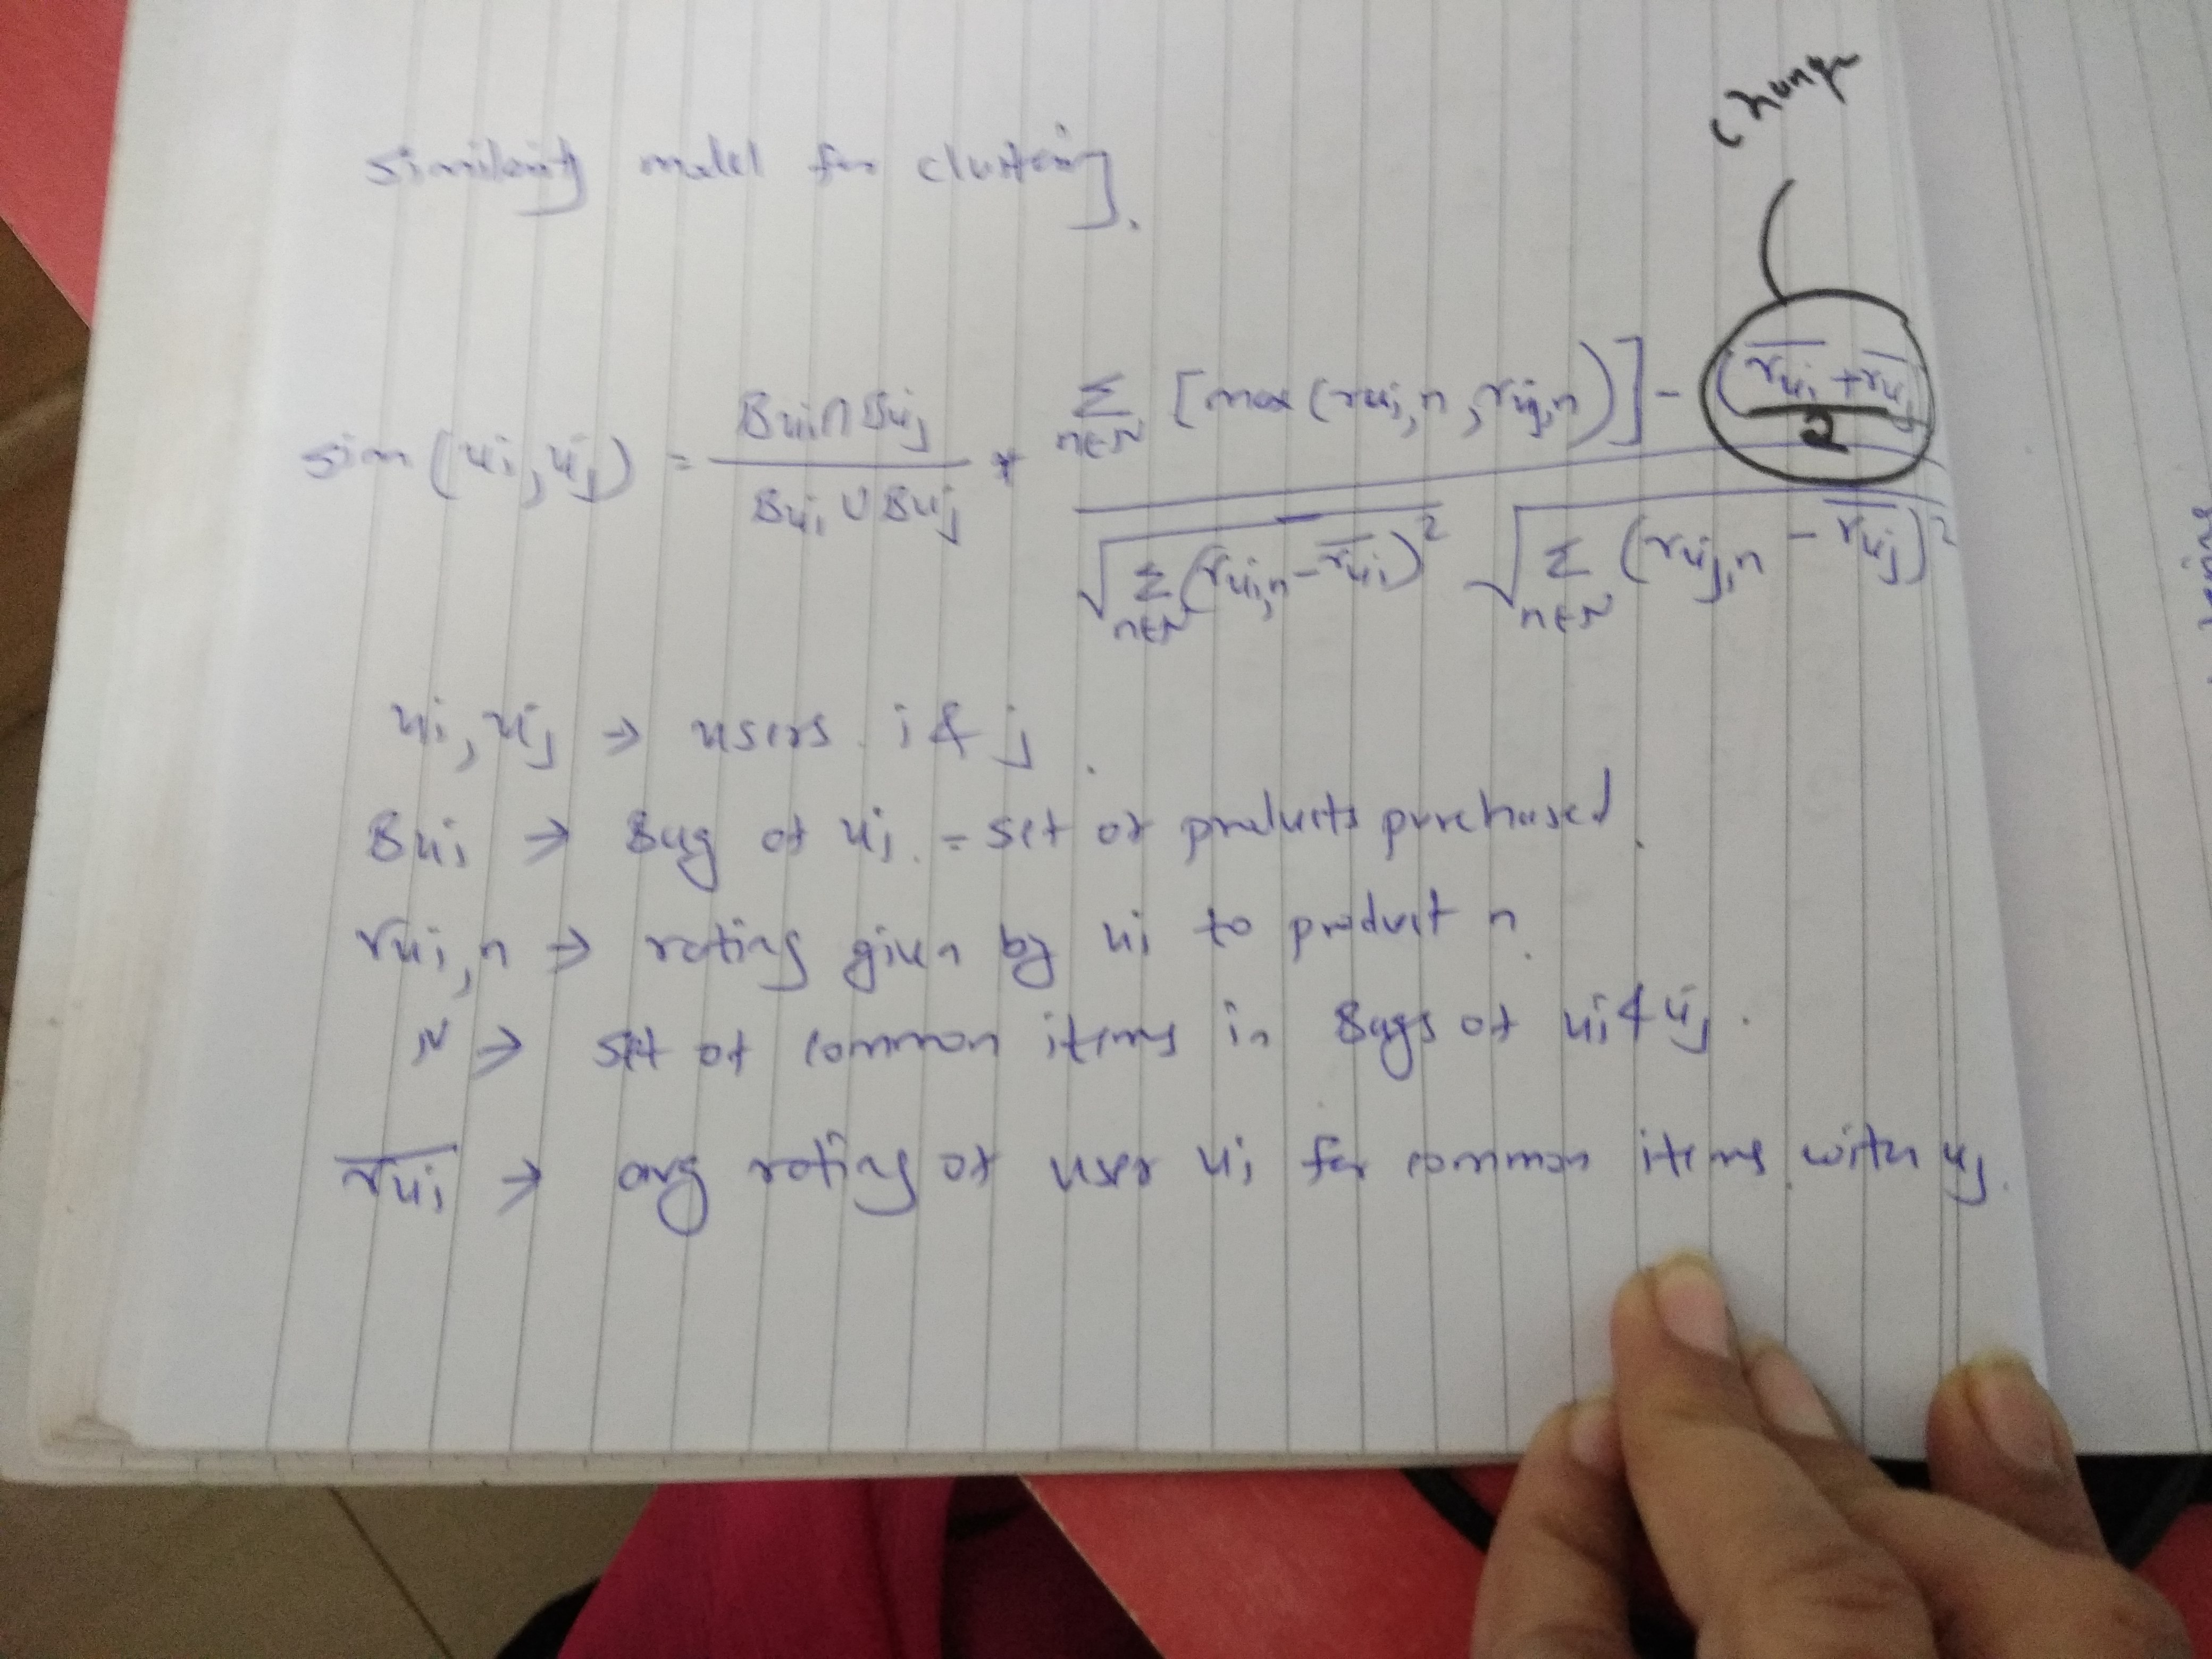 change
Similarity model for clustering.
sim (ui, uj) = Bui ∩ Buj / Bui ∪ Buj * Σ n∈N [max (rui,n , ruj,n)] - (r̅ui + r̅uj / 2) / √Σ n∈N (rui,n - r̅ui)² √Σ n∈N (ruj,n - r̅uj)²
ui, uj → users i & j.
Bui → Bag of ui. = set of products purchased.
rui,n → rating given by ui to product n.
N → set of common items in Bags of ui & uj.
r̅ui → avg rating of user ui for common items with uj.